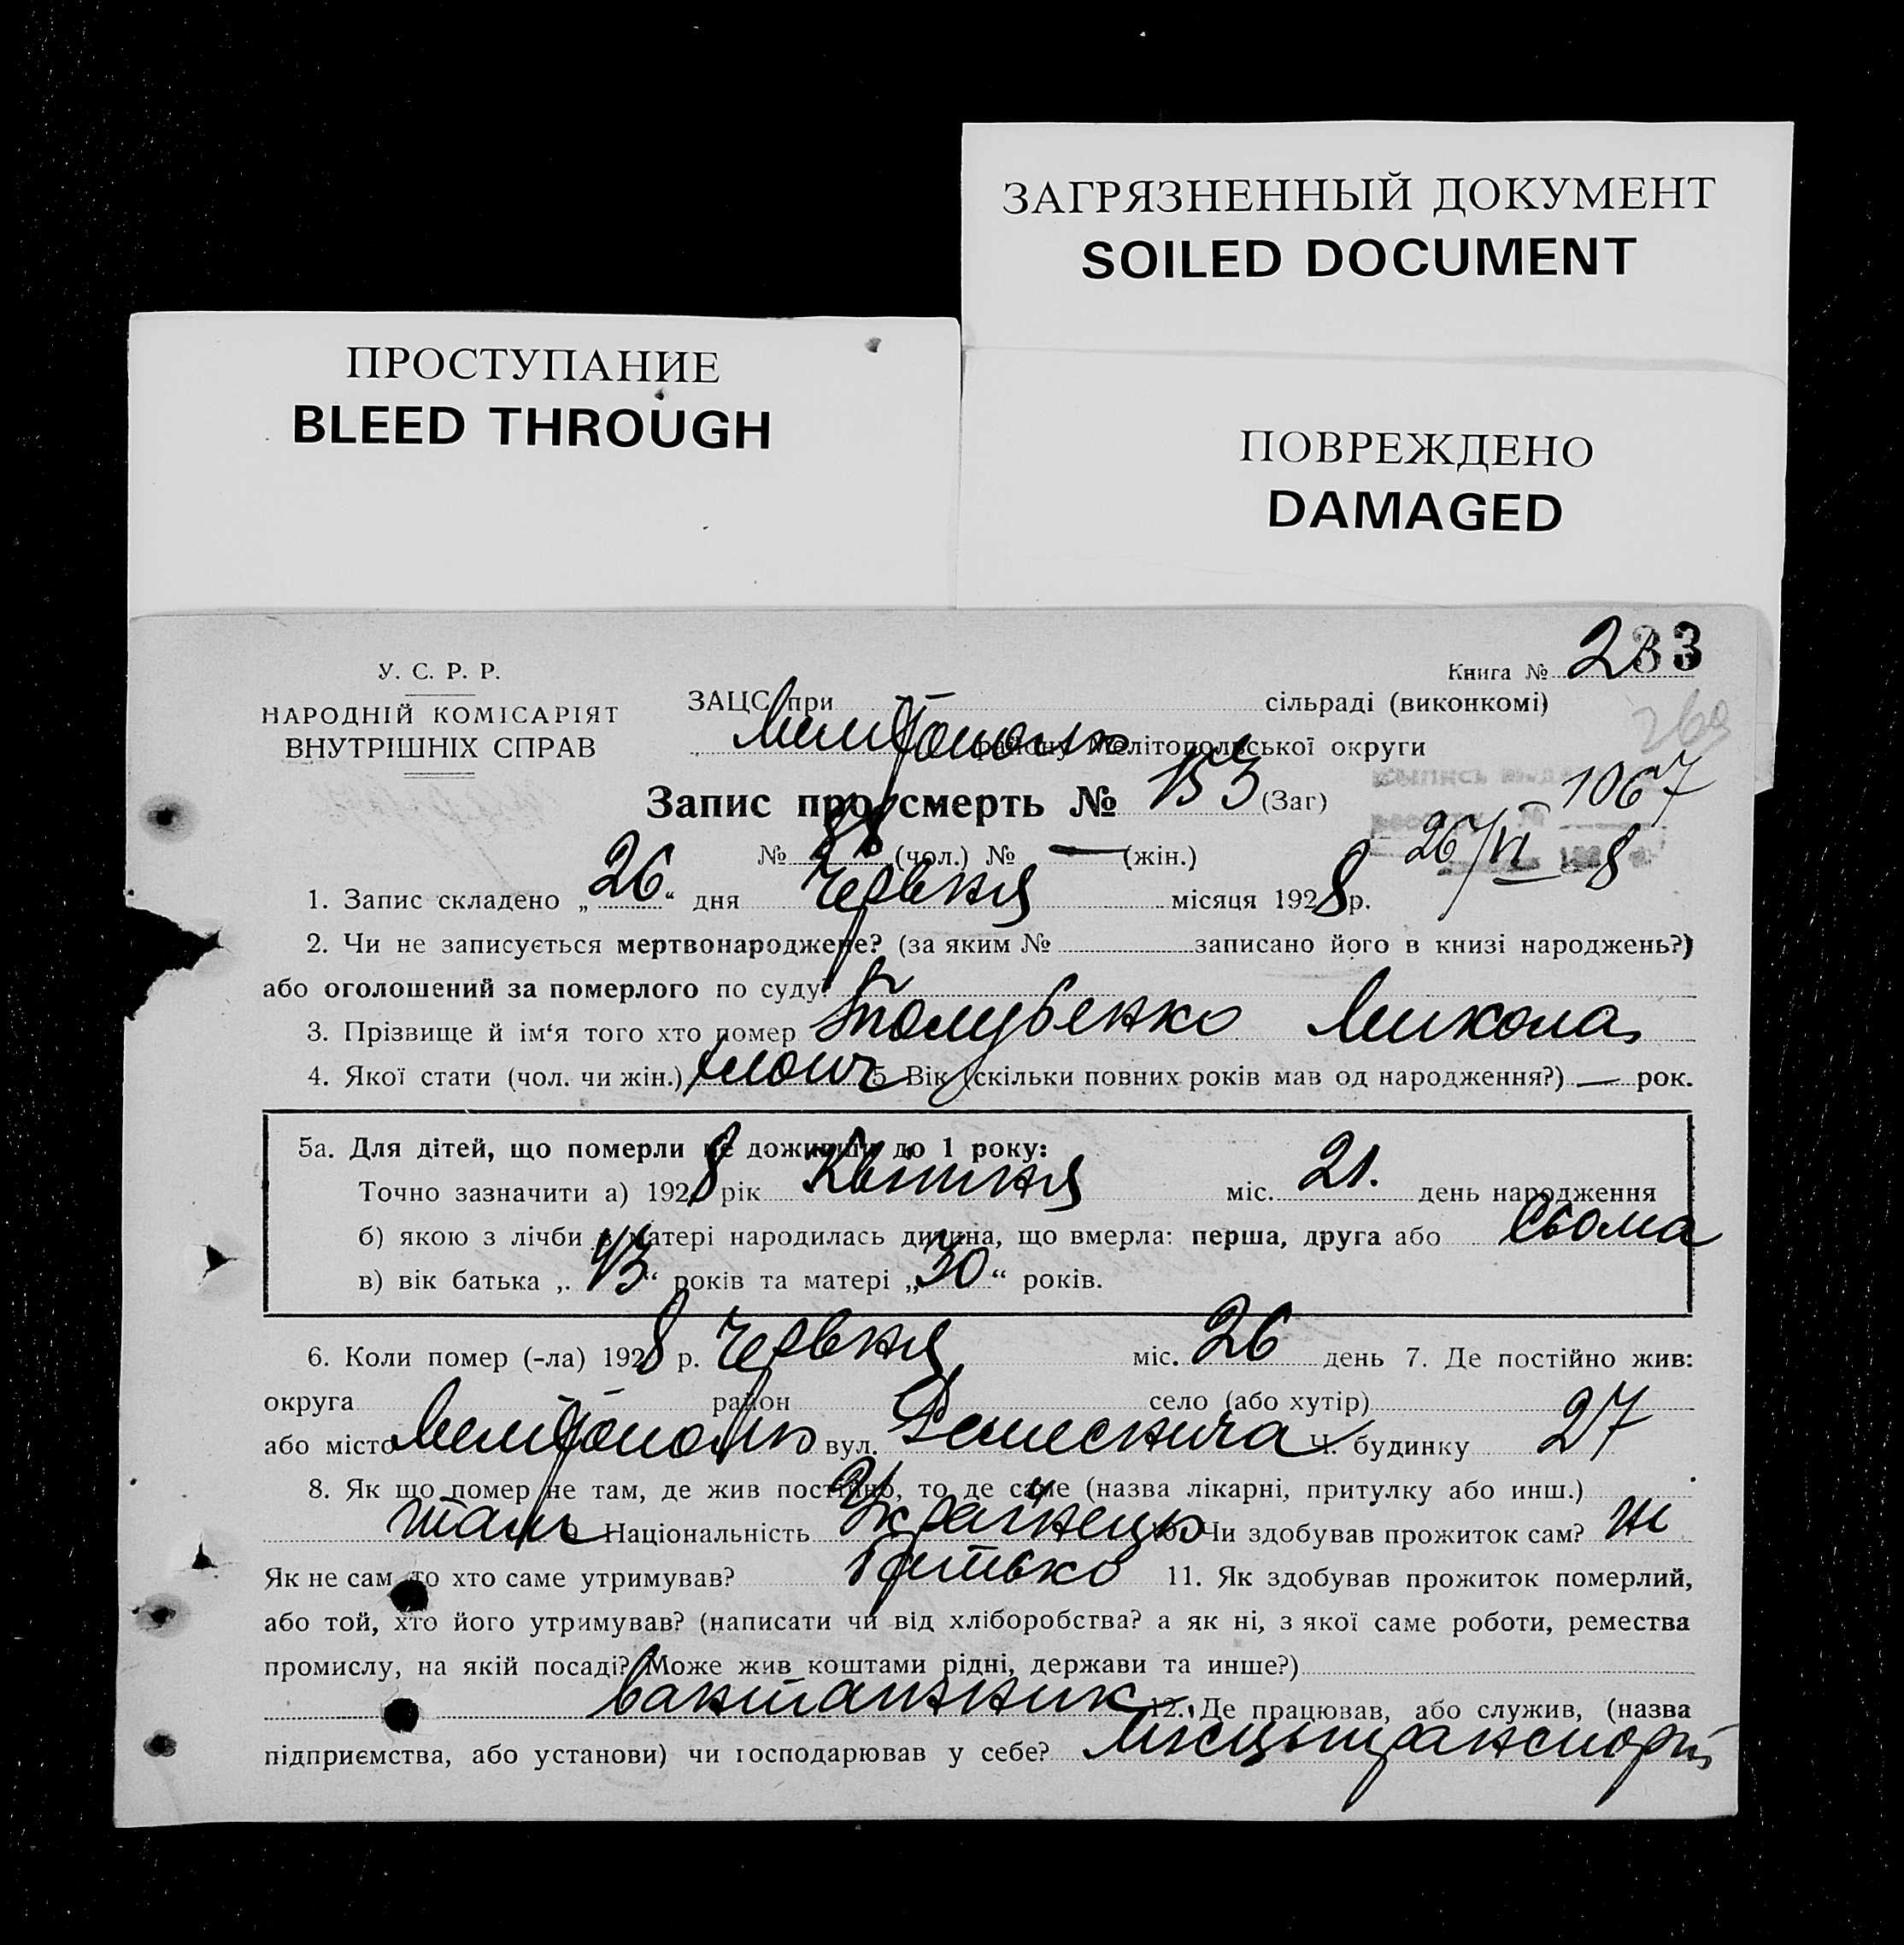 ЗАГРЯЗНЕННЫЙ ДОКУМЕНТ
SOILED DOCUMENT
ПРОСТУПАНИЕ
BLEED THROUGH
ПОВРЕЖДЕНО
DAMAGED
У. С. Р. Р.
НАРОДНІЙ КОМІСАРІЯТ
ВНУТРІШНІХ СПРАВ
Книга № 2 33
ЗАЦС при сільраді (виконкомі)
району Мелітопольської округи
269
Запис про смерть № 153 (Заг)
1067
№ 88 (чол.) № — (жін.)
26/VI 8
1. Запис складено „26“ дня Червня місяця 1928 р.
2. Чи не записується мертвонароджене? (за яким № записано його в книзі народжень?)
або оголошений за померлого по суду?
3. Прізвище й ім‘я того хто помер Голубенко Микола
4. Якої стати (чол. чи жін.) 5 Вік (скільки повних років мав од народження?) — рок.
5а. Для дітей, що померли не доживши до 1 року:
Точно зазначити а) 1928 рік Квітня міс. 21. день народження
б) якою з лічби в матері народилась дитина, що вмерла: перша, друга або Сьома
в) вік батька „43“ років та матері „30“ років.
6. Коли помер (-ла) 1928 р. Червня міс. 26 день 7. Де постійно жив:
округа район село (або хутір)
або місто Мелітополь вул. Ч. будинку 27
8. Як що помер не там, де жив постійно, то де саме (назва лікарні, притулку або инш.)
там Національність Українець Чи здобував прожиток сам? ні
Як не сам то хто саме утримував? батько 11. Як здобував прожиток померлий,
або той, хто його утримував? (написати чи від хліборобства? а як ні, з якої саме роботи, ремества
промислу, на якій посаді? Може жив коштами рідні, держави та инше?)
вантажник 12. Де працював, або служив, (назва
підприємства, або установи) чи господарював у себе? Місцьтранспорт